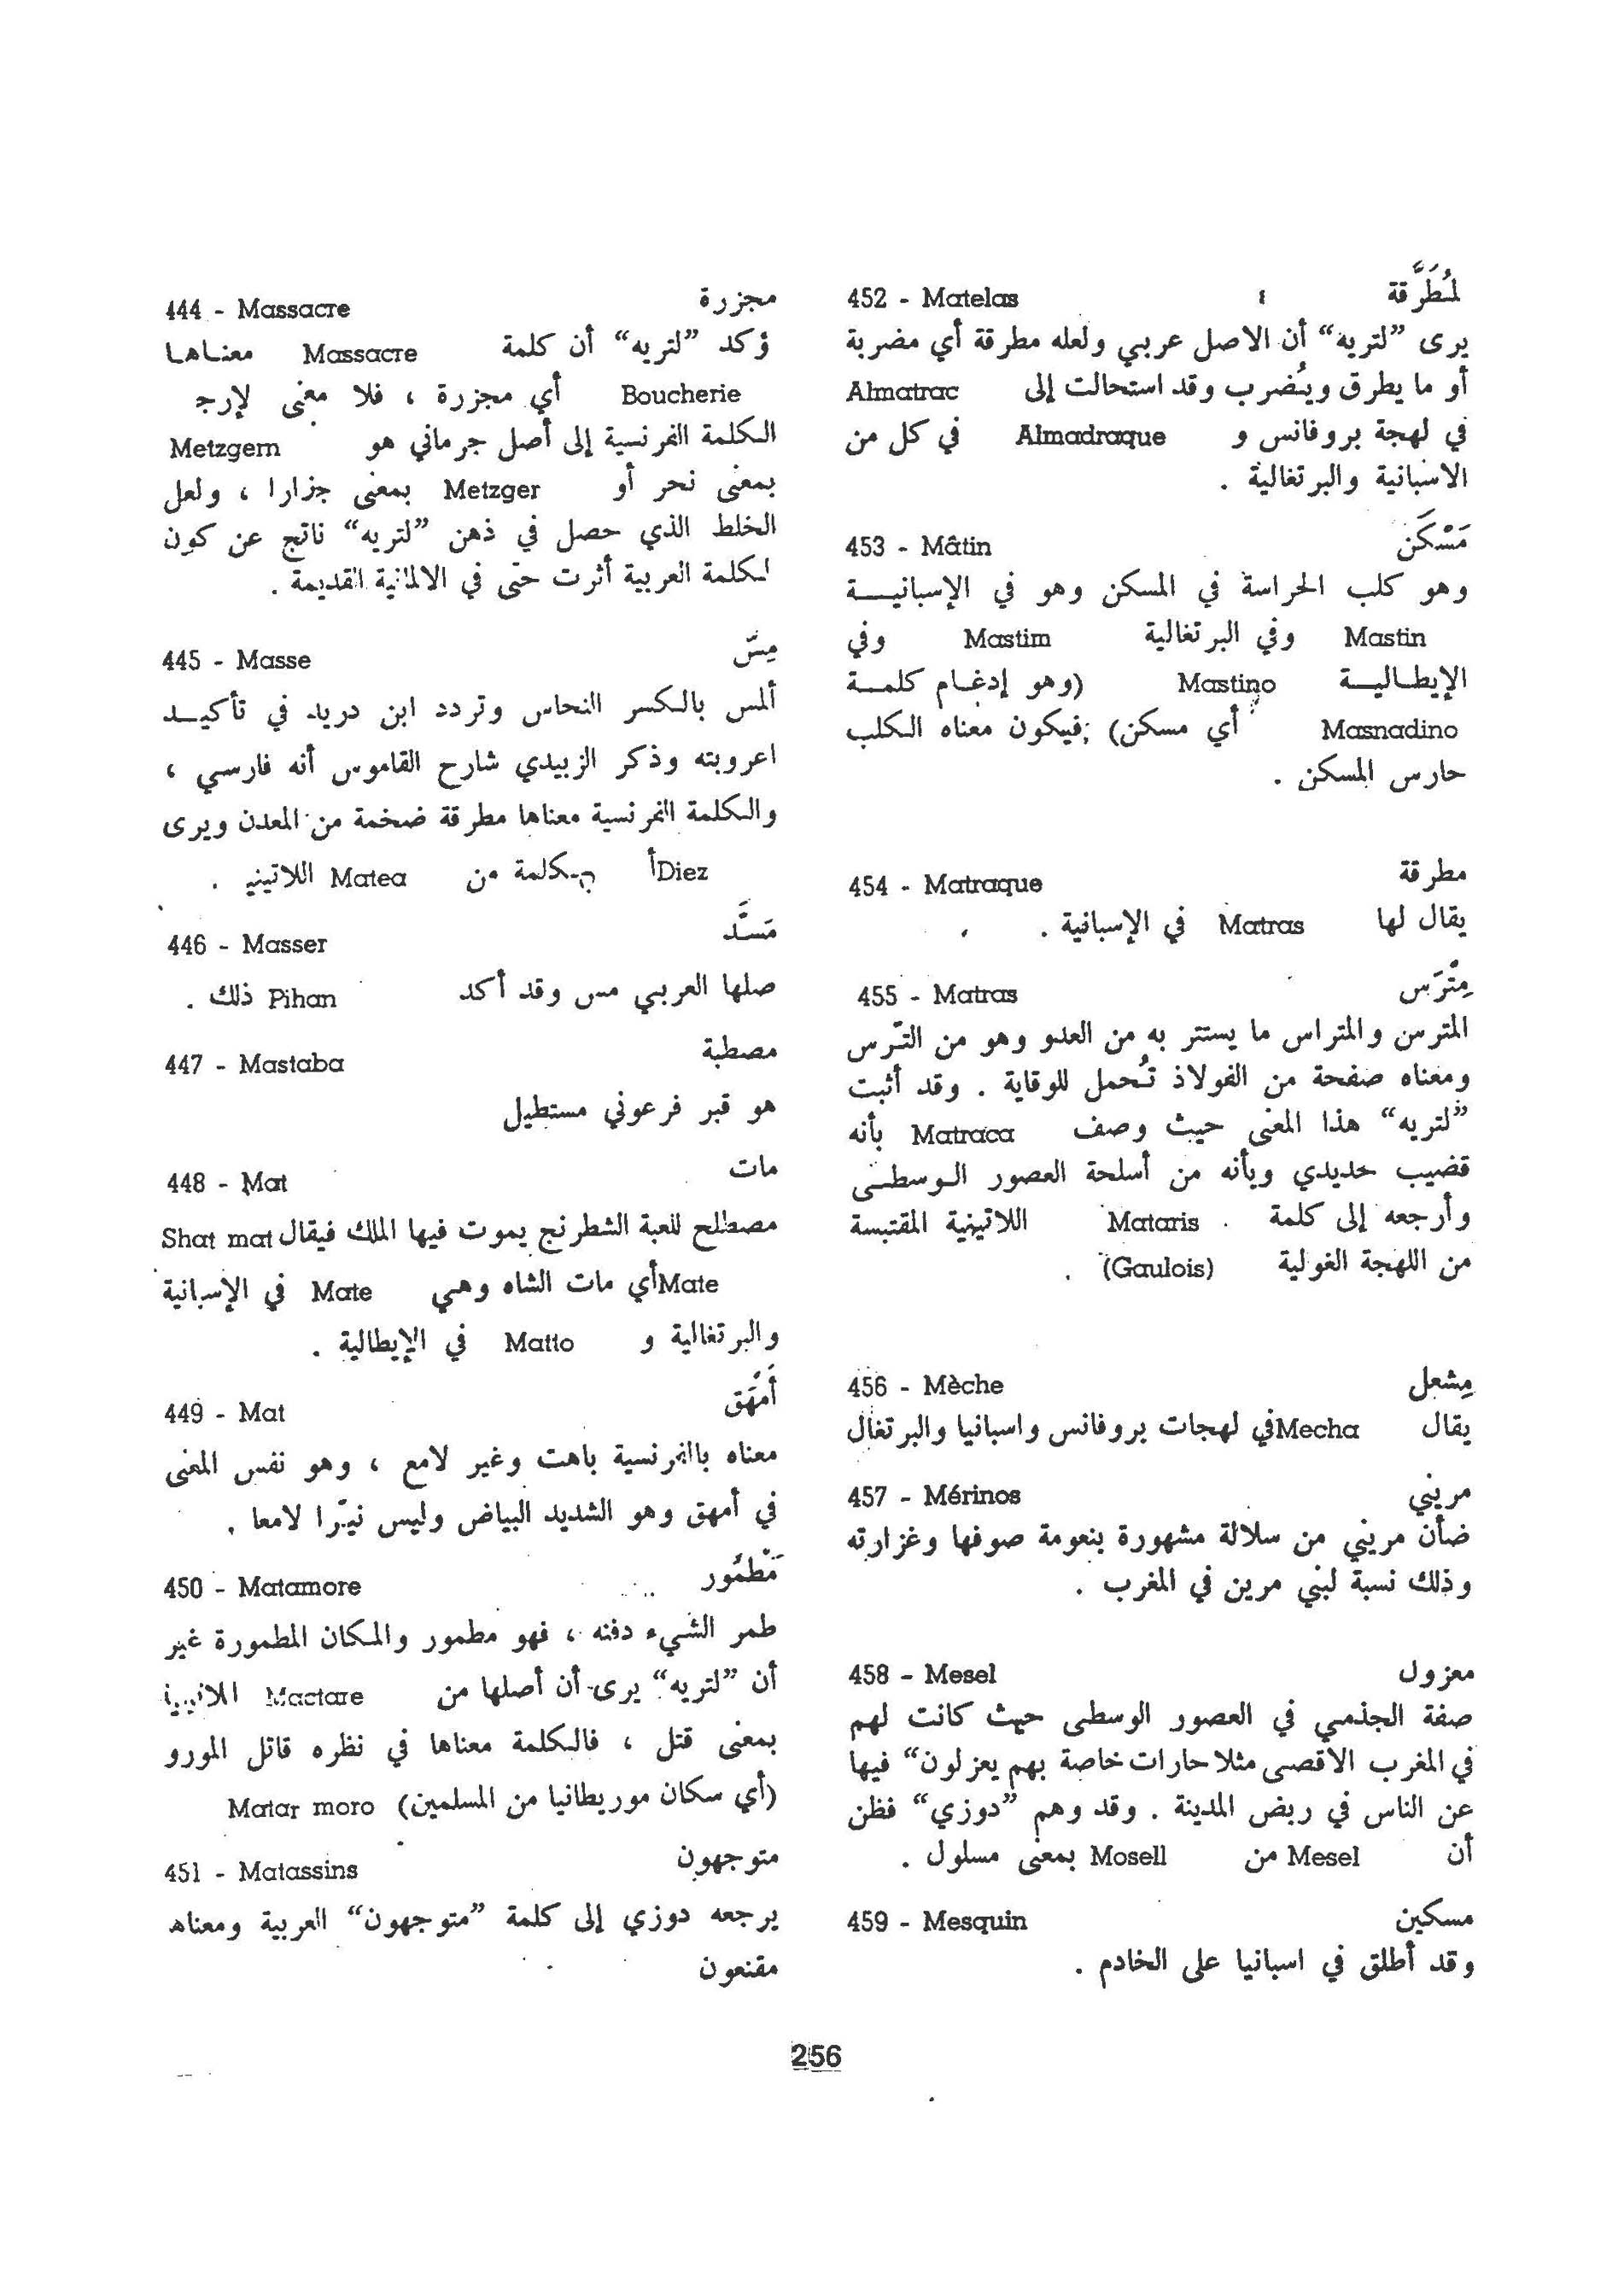 444 - Massacre مجزرة
ؤكد ”لتريه“ أن كلمة Massacre معناها
Boucherie أي مجزرة ، فلا معنى لإرج
الكلمة الفرنسية إلى أصل جرماني هو Metzgern
بمعنى نحر أو Metzger بمعنى جزارا ، ولعل
الخلط الذي حصل في ذهن ”لتريه“ ناتج عن كون
لكلمة العربية أثرت حتى في الالمانية القديمة .
445 - Masse مِسّ
ألمس بالكسر النحاس وتردد ابن دريد في تأكيـد
اعروبته وذكر الزبيدي شارح القاموس أنه فارسي ،
والكلمة الفرنسية معناها مطرقة ضخمة من المعدن ويرى
Diez أ كلمة من Matea اللاتيني .
446 - Masser مَسَّد
صلها العربي مس وقد أكد Pihan ذلك .
447 - Mastaba مصطبة
هو قبر فرعوني مستطيل
448 - Mat مات
مصطلح للعبة الشطرنج يموت فيها الملك فيقال Shat mat
Mate أي مات الشاه وهي Mate في الإسبانية
والبرتغالية و Matto في الإيطالية .
449 - Mat أَمْهَق
معناه بالفرنسية باهت وغير لامع ، وهو نفس المعنى
في أمهق وهو الشديد البياض وليس نيّرا لامعا .
450 - Matamore مَطْمُور
طمر الشيء دفنه ، فهو مطمور والمكان المطمورة غير
أن ”لتريه“ يرى أن أصلها من Mactare
بمعنى قتل ، فالكلمة معناها في نظره قاتل المورو
(أي سكان موريطانيا من المسلمين) Matar moro
451 - Matassins متوجهون
يرجعه دوزي إلى كلمة ”متوجهون“ العربية ومعناه
مقنعون
452 - Matelas لمُطَرَّقة
يرى ”لتريه“ أن الاصل عربي ولعله مطرقة أي مضربة
أو ما يطرق ويُضرب وقد استحالت إلى Almatrac
في لهجة بروفانس و Almadraque في كل من
الاسبانية والبرتغالية .
453 - Mâtin مَسْكَن
وهو كلب الحراسة في المسكن وهو في الإسبانيـة
Mastin وفي البرتغالية Mastim وفي
الإيطاليـة Mastino (وهو إدغام كلمـة
Masnadino أي مسكن) فيكون معناه الكلب
حارس المسكن .
454 - Matraque مطرقة
يقال لها Matras في الإسبانية .
455 - Matras مِتْرَس
المترس والمتراس ما يستتر به من العدو وهو من التّرس
ومعناه صفحة من الفولاذ تُحمل للوقاية . وقد أثبت
”لتريه“ هذا المعنى حيث وصف Matraca بأنه
قضيب حديدي وبأنه من أسلحة العصور الوسطى
وأرجعه إلى كلمة Mataris اللاتينية المقتبسة
من اللهجة الغولية (Gaulois) .
456 - Mèche مِشعل
يقال Mecha في لهجات بروفانس واسبانيا والبرتغال
457 - Mérinos مريني
ضأن مريني من سلالة مشهورة بنعومة صوفها وغزارته
وذلك نسبة لبني مرين في المغرب .
458 - Mesel معزول
صفة الجذمي في العصور الوسطى حيث كانت لهم
في المغرب الاقصى مثلا حارات خاصة بهم يعزلون“ فيها
عن الناس في ربض المدينة . وقد وهم ”دوزي“ فظن
أن Mesel من Mosell بمعنى مسلول .
459 - Mesquin مسكين
وقد أطلق في اسبانيا على الخادم .
256